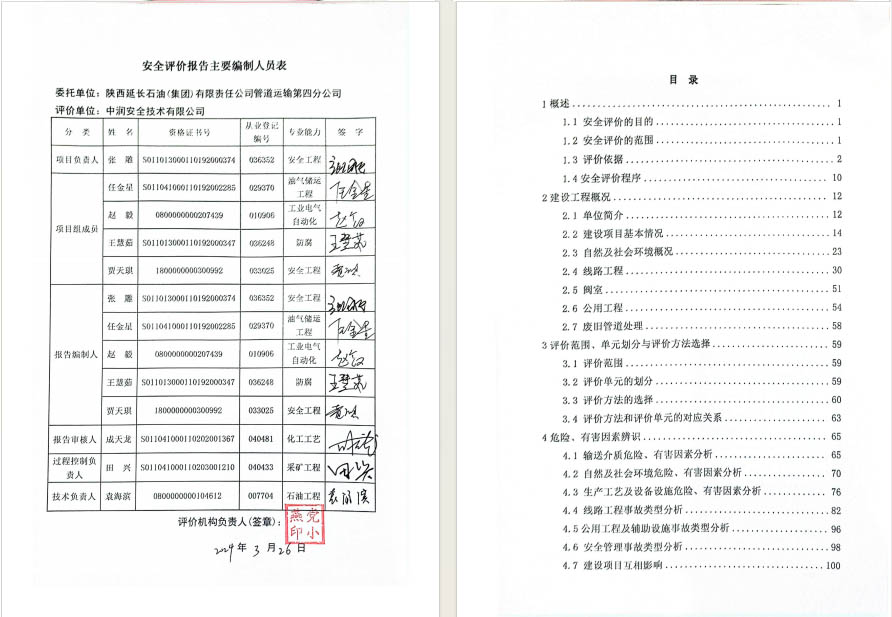 安全评价报告主要编制人员表
委托单位：陕西延长石油(集团)有限责任公司管道运输第四分公司
评价单位：中润安全技术有限公司
分 类 姓 名 资格证书号 从业登记编号 专业能力 签 字
项目负责人 张 雕 S011013000110192000374 036352 安全工程
项目组成员 任金星 S011041000110192002285 029370 油气储运工程 任金星
赵 毅 0800000000207439 010906 工业电气自动化 赵毅
王慧茹 S011013000110192000347 036248 防腐 王慧茹
贾天琪 1800000000300992 033025 安全工程
报告编制人 张 雕 S011013000110192000374 036352 安全工程
任金星 S011041000110192002285 029370 油气储运工程 任金星
赵 毅 0800000000207439 010906 工业电气自动化 赵毅
王慧茹 S011013000110192000347 036248 防腐 王慧茹
贾天琪 1800000000300992 033025 安全工程
报告审核人 成天龙 S011041000110202001367 040481 化工工艺
过程控制负责人 田 兴 S011041000110203001210 040433 采矿工程 田兴
技术负责人 袁海滨 0800000000104612 007704 石油工程 袁海滨
评价机构负责人(签章)：
党小燕印
2024年 3月26日
目 录
1 概述 1
1.1 安全评价的目的 1
1.2 安全评价的范围 1
1.3 评价依据 2
1.4 安全评价程序 10
2 建设工程概况 12
2.1 单位简介 12
2.2 建设项目基本情况 14
2.3 自然及社会环境概况 23
2.4 线路工程 30
2.5 阀室 51
2.6 公用工程 54
2.7 废旧管道处理 58
3 评价范围、单元划分与评价方法选择 59
3.1 评价范围 59
3.2 评价单元的划分 59
3.3 评价方法的选择 60
3.4 评价方法和评价单元的对应关系 63
4 危险、有害因素辨识 65
4.1 输送介质危险、有害因素分析 65
4.2 自然及社会环境危险、有害因素分析 70
4.3 生产工艺及设备设施危险、有害因素分析 76
4.4 线路工程事故类型分析 82
4.5 公用工程及辅助设施事故类型分析 96
4.6 安全管理事故类型分析 98
4.7 建设项目互相影响 100